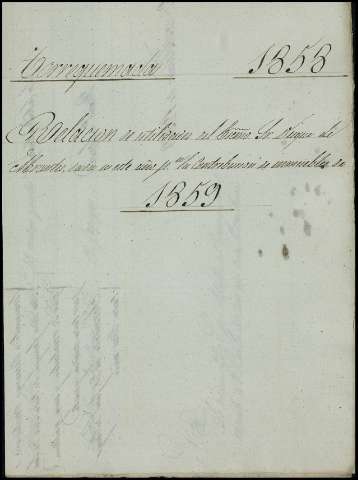 Torrequemada 1858
Relacion de utilidades del Excmo. Sr. Duque de
Abrantes, dada en este año pa. la Contribucion de inmuebles de
1859